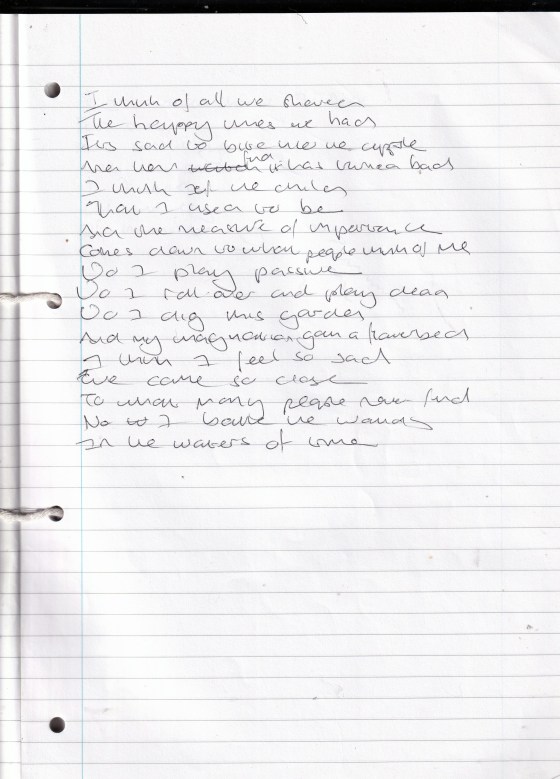 I think of all we shared
The happy times we had
It's sad to bite into the apple
And then find it has turned bad
I think of the child
That I used to be
And the measure of importance
Comes down to what people think of me
Do I play passive
Do I roll over and play dead
Do I dig this garden
And my imagination a flowerbed
I think I feel so sad
I've come so close
To what many people never find
No I bathe the wounds
In the waters of time